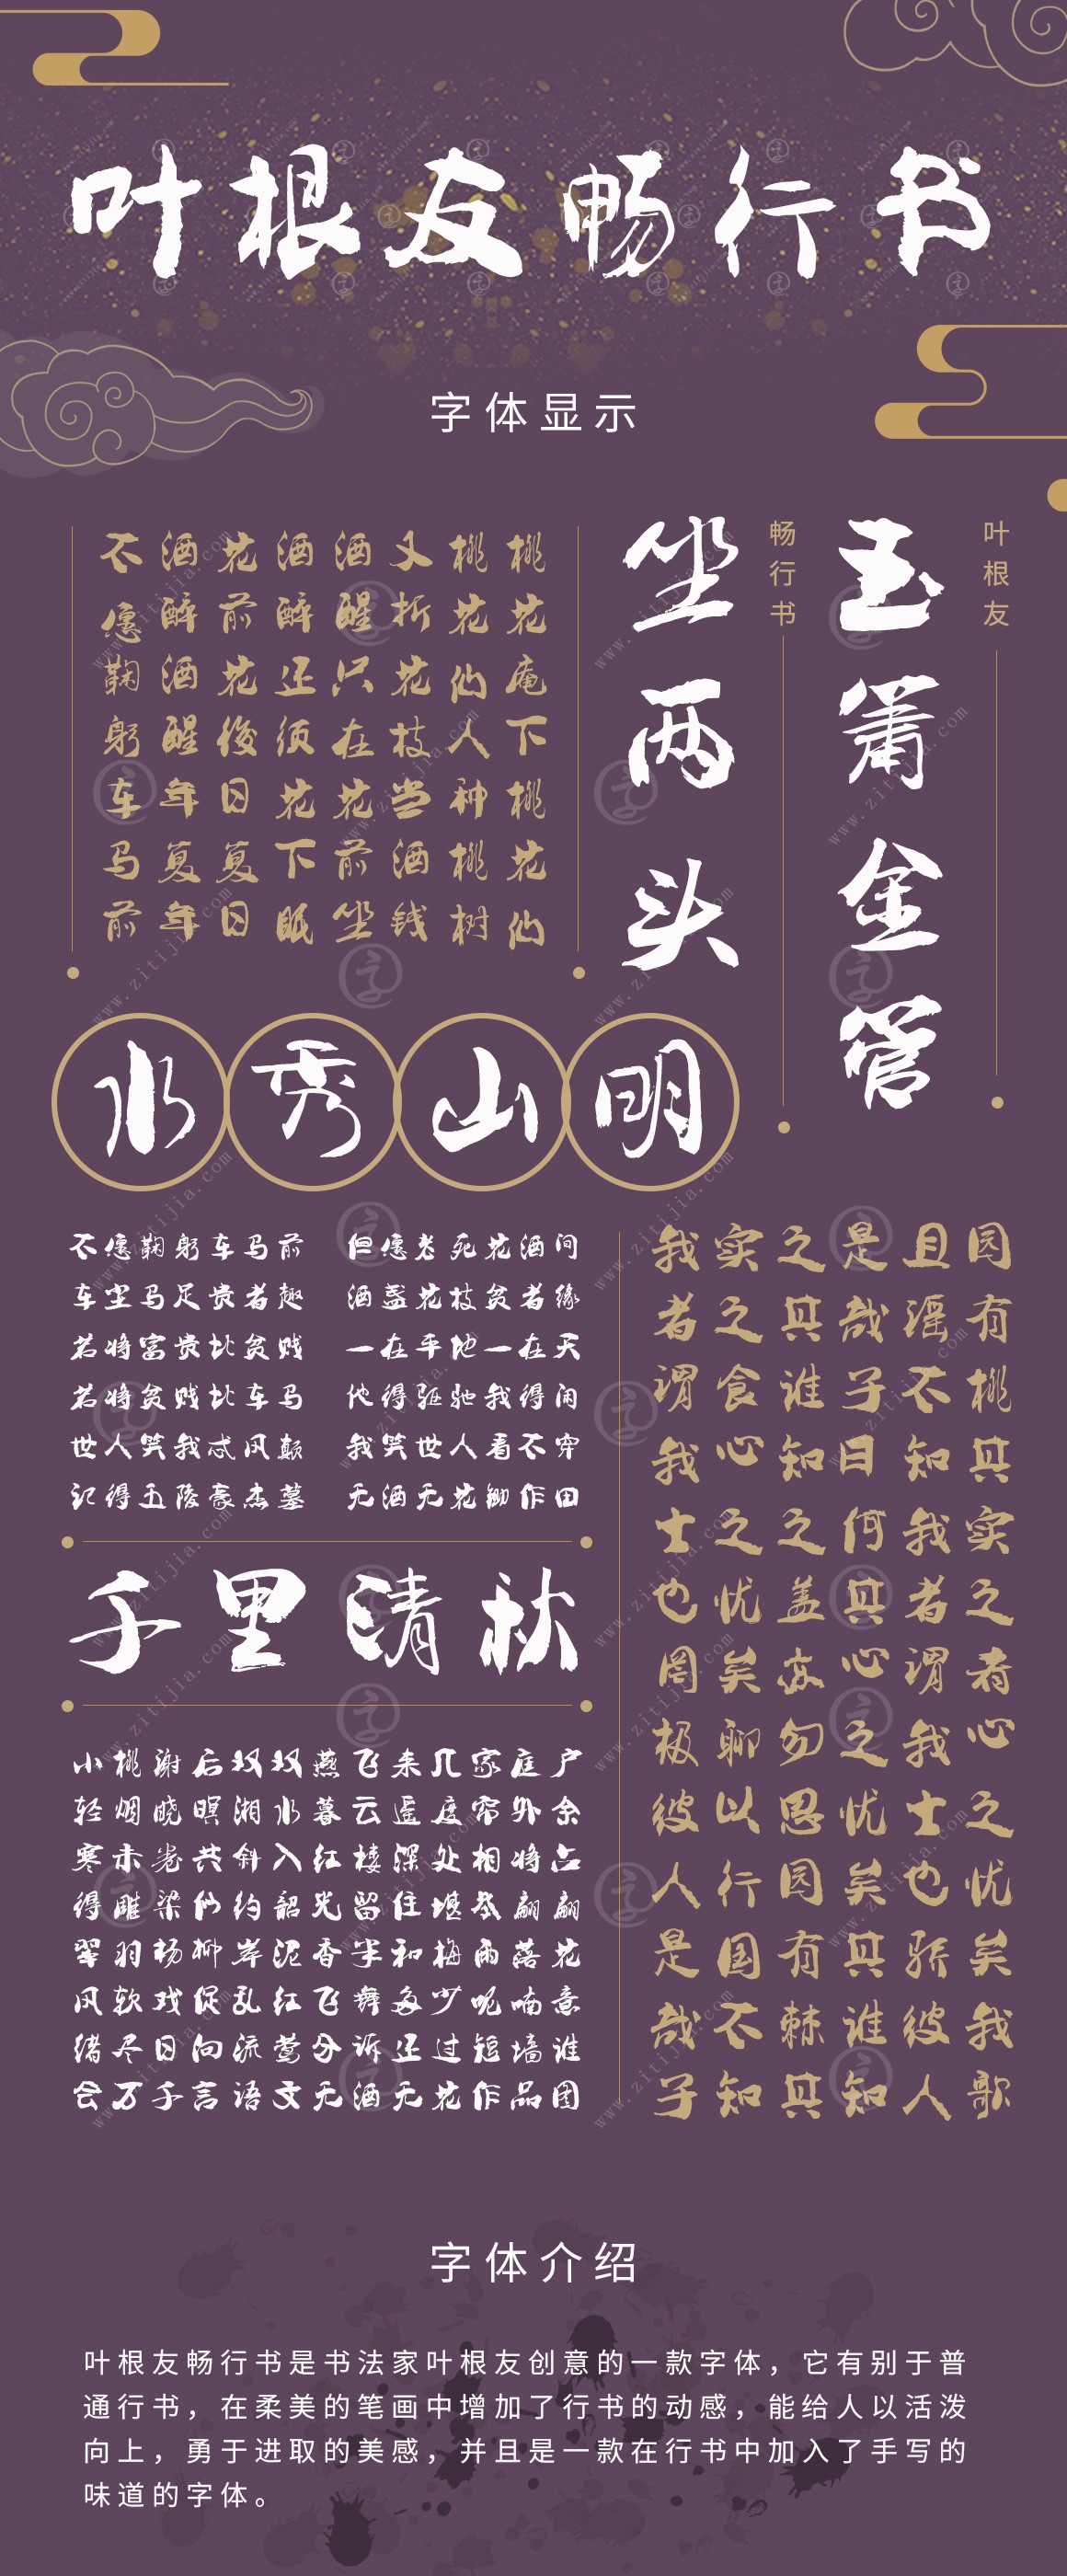 叶根友畅行书
字体显示
叶根友
玉箫金管
畅行书
坐两头
桃花庵下桃花仙
桃花仙人种桃树
又折花枝当酒钱
酒醒只在花前坐
酒醉还须花下眠
花前花後日复日
酒醉酒醒年复年
不愿鞠躬车马前
水秀山明
不愿鞠躬车马前 但愿老死花酒间
车尘马足贵者趣 酒盏花枝贫者缘
若将富贵比贫贱 一在平地一在天
若将贫贱比车马 他得驱驰我得闲
世人笑我忒风颠 我笑世人看不穿
记得五陵豪杰墓 无酒无花锄作田
千里清秋
小桃谢后双双燕飞来几家庭户
轻烟晓暝湘水暮云遥度帘外余
寒未卷共斜入红楼深处相将占
得雕梁似约韶光留住堪举翩翩
翠羽杨柳岸泥香半和梅雨落花
风软戏促乱红飞舞多少呢喃意
绪尽日向流莺分诉还过短墙谁
会万千言语文无酒无花作品图
园有桃其实之者心之忧矣我歌
且谣不知我者谓我士也骄彼人
是哉子曰何其心之忧矣其谁知
之其谁知之盖亦勿思园有棘其
实之食心之忧矣聊以行国不知
我者谓我士也罔极彼人是哉子
字体介绍
叶根友畅行书是书法家叶根友创意的一款字体，它有别于普
通行书，在柔美的笔画中增加了行书的动感，能给人以活泼
向上，勇于进取的美感，并且是一款在行书中加入了手写的
味道的字体。
www.zitijia.com